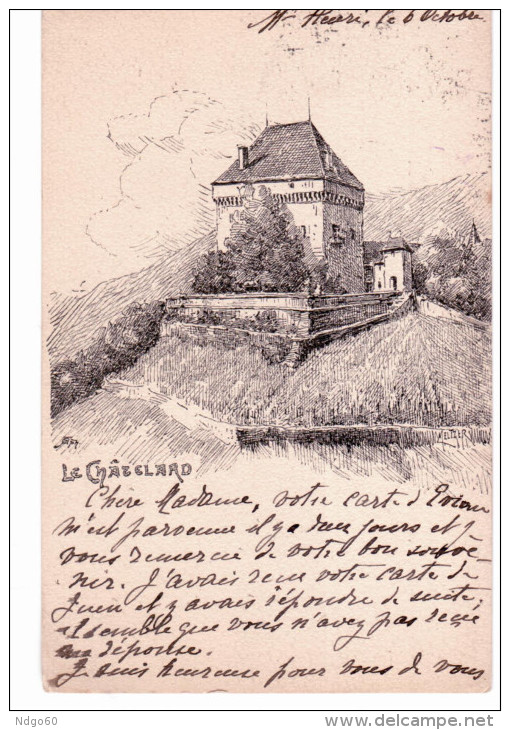 Mr Henri, le 6 Octobre
MELTZER
LE CHÂTELARD
Chère Madame, votre carte d'Evian
m'est parvenue il y a deux jours et j
vous remercie de votre bon souve-
nir. J'avais reçu votre carte de
Juin et y avais répondre de suite;
semble que vous n'avez pas reçue
ma réponse.
Je suis heureuse pour vous de vous
Ndgo60
www.delcampe.net